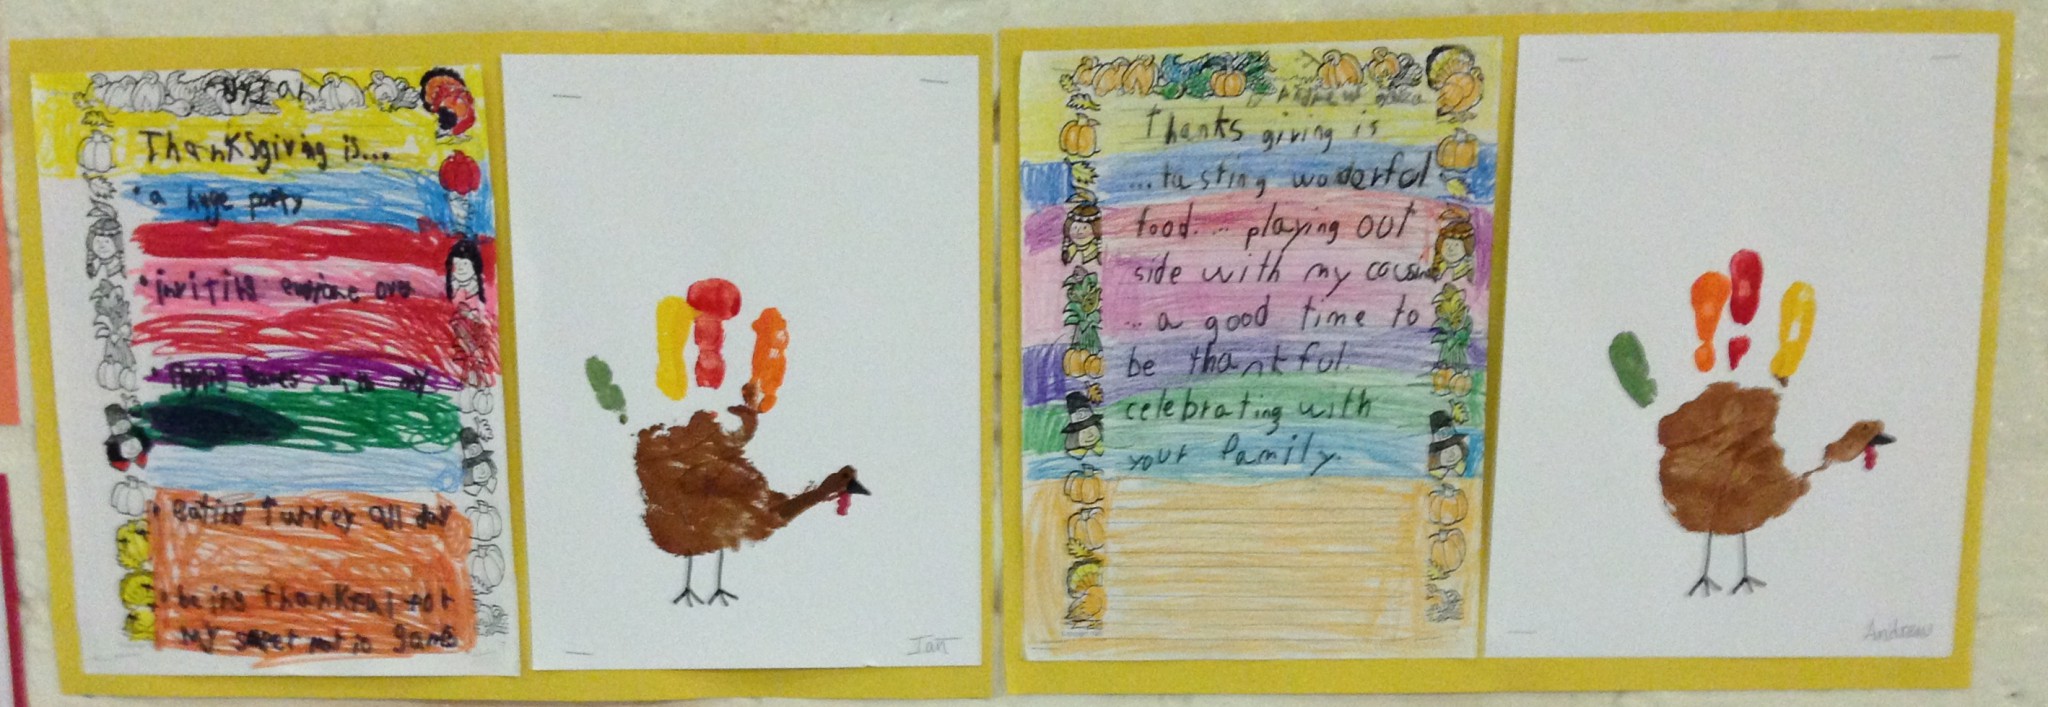 By Ian
Thanksgiving is...
• a huge party
• inviting everyone over
• Playing games with my
• eating turkey all day
• being thankful for
my
Ian
Thanks giving is
...tasting woderful
food.... playing out
side with my cousins
... a good time to
be thankful.
celebrating with
your family.
Andrew